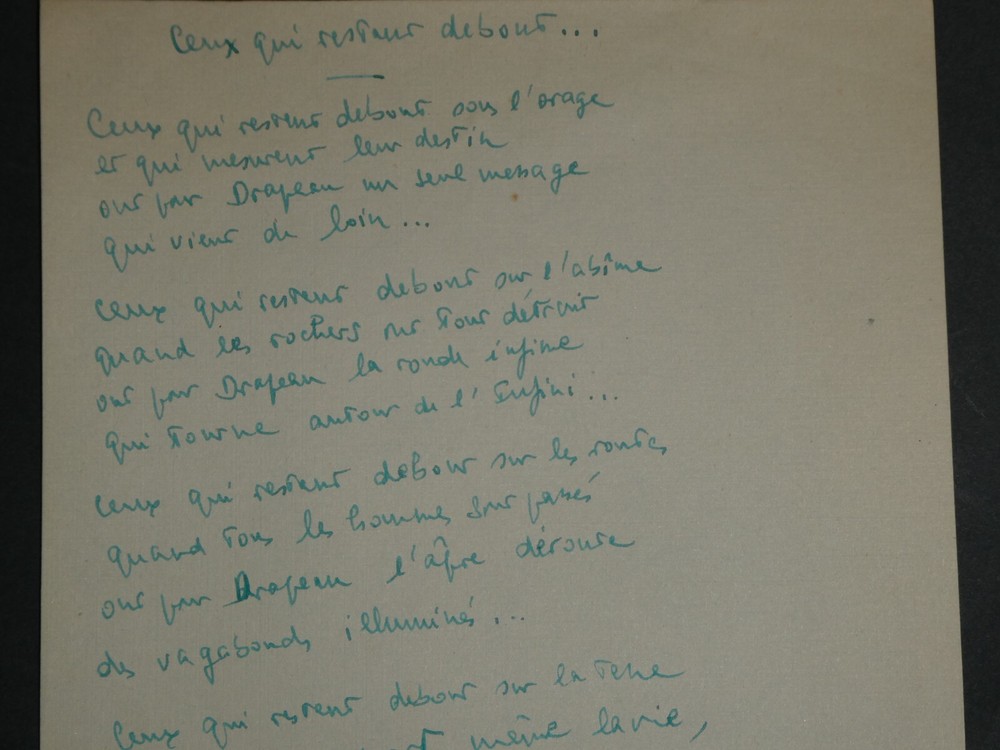 Ceux qui restent debout...
Ceux qui restent debout sous l'orage
et qui mesurent leur destin
ont pour Drapeau un seul message
qui vient de loin...
Ceux qui restent debout sur l'abîme
quand les rochers ont tout détruit
ont pour Drapeau la ronde infime
qui tourne autour de l'Infini...
Ceux qui restent debout sur les routes
quand tous les hommes sont passés
ont pour Drapeau l'âpre déroute
des vagabonds illuminés...
Ceux qui restent debout sur la terre
même la vie,